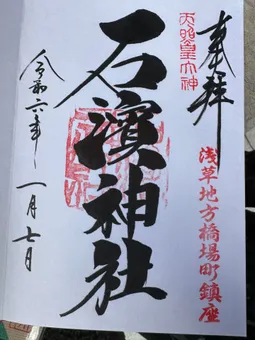 奉拝
浅草地方橋場町鎮座
天照皇大神
石濱神社
令和六年一月七日